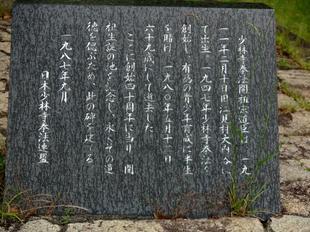 少林寺拳法開祖宗道臣は 一九
一一年二月十日旧江見村大内谷に
て出生 一九四七年少林寺拳法を
創始し 有為の青少年育成に半生
を賭け 一九八〇年五月十二日
六十九歳にして逝去した
ここに創始四十周年に当り 開
祖生誕の地を記念し 永くその遺
徳を偲ぶため 此の碑を建てる
一九八七年九月
日本少林寺拳法連盟